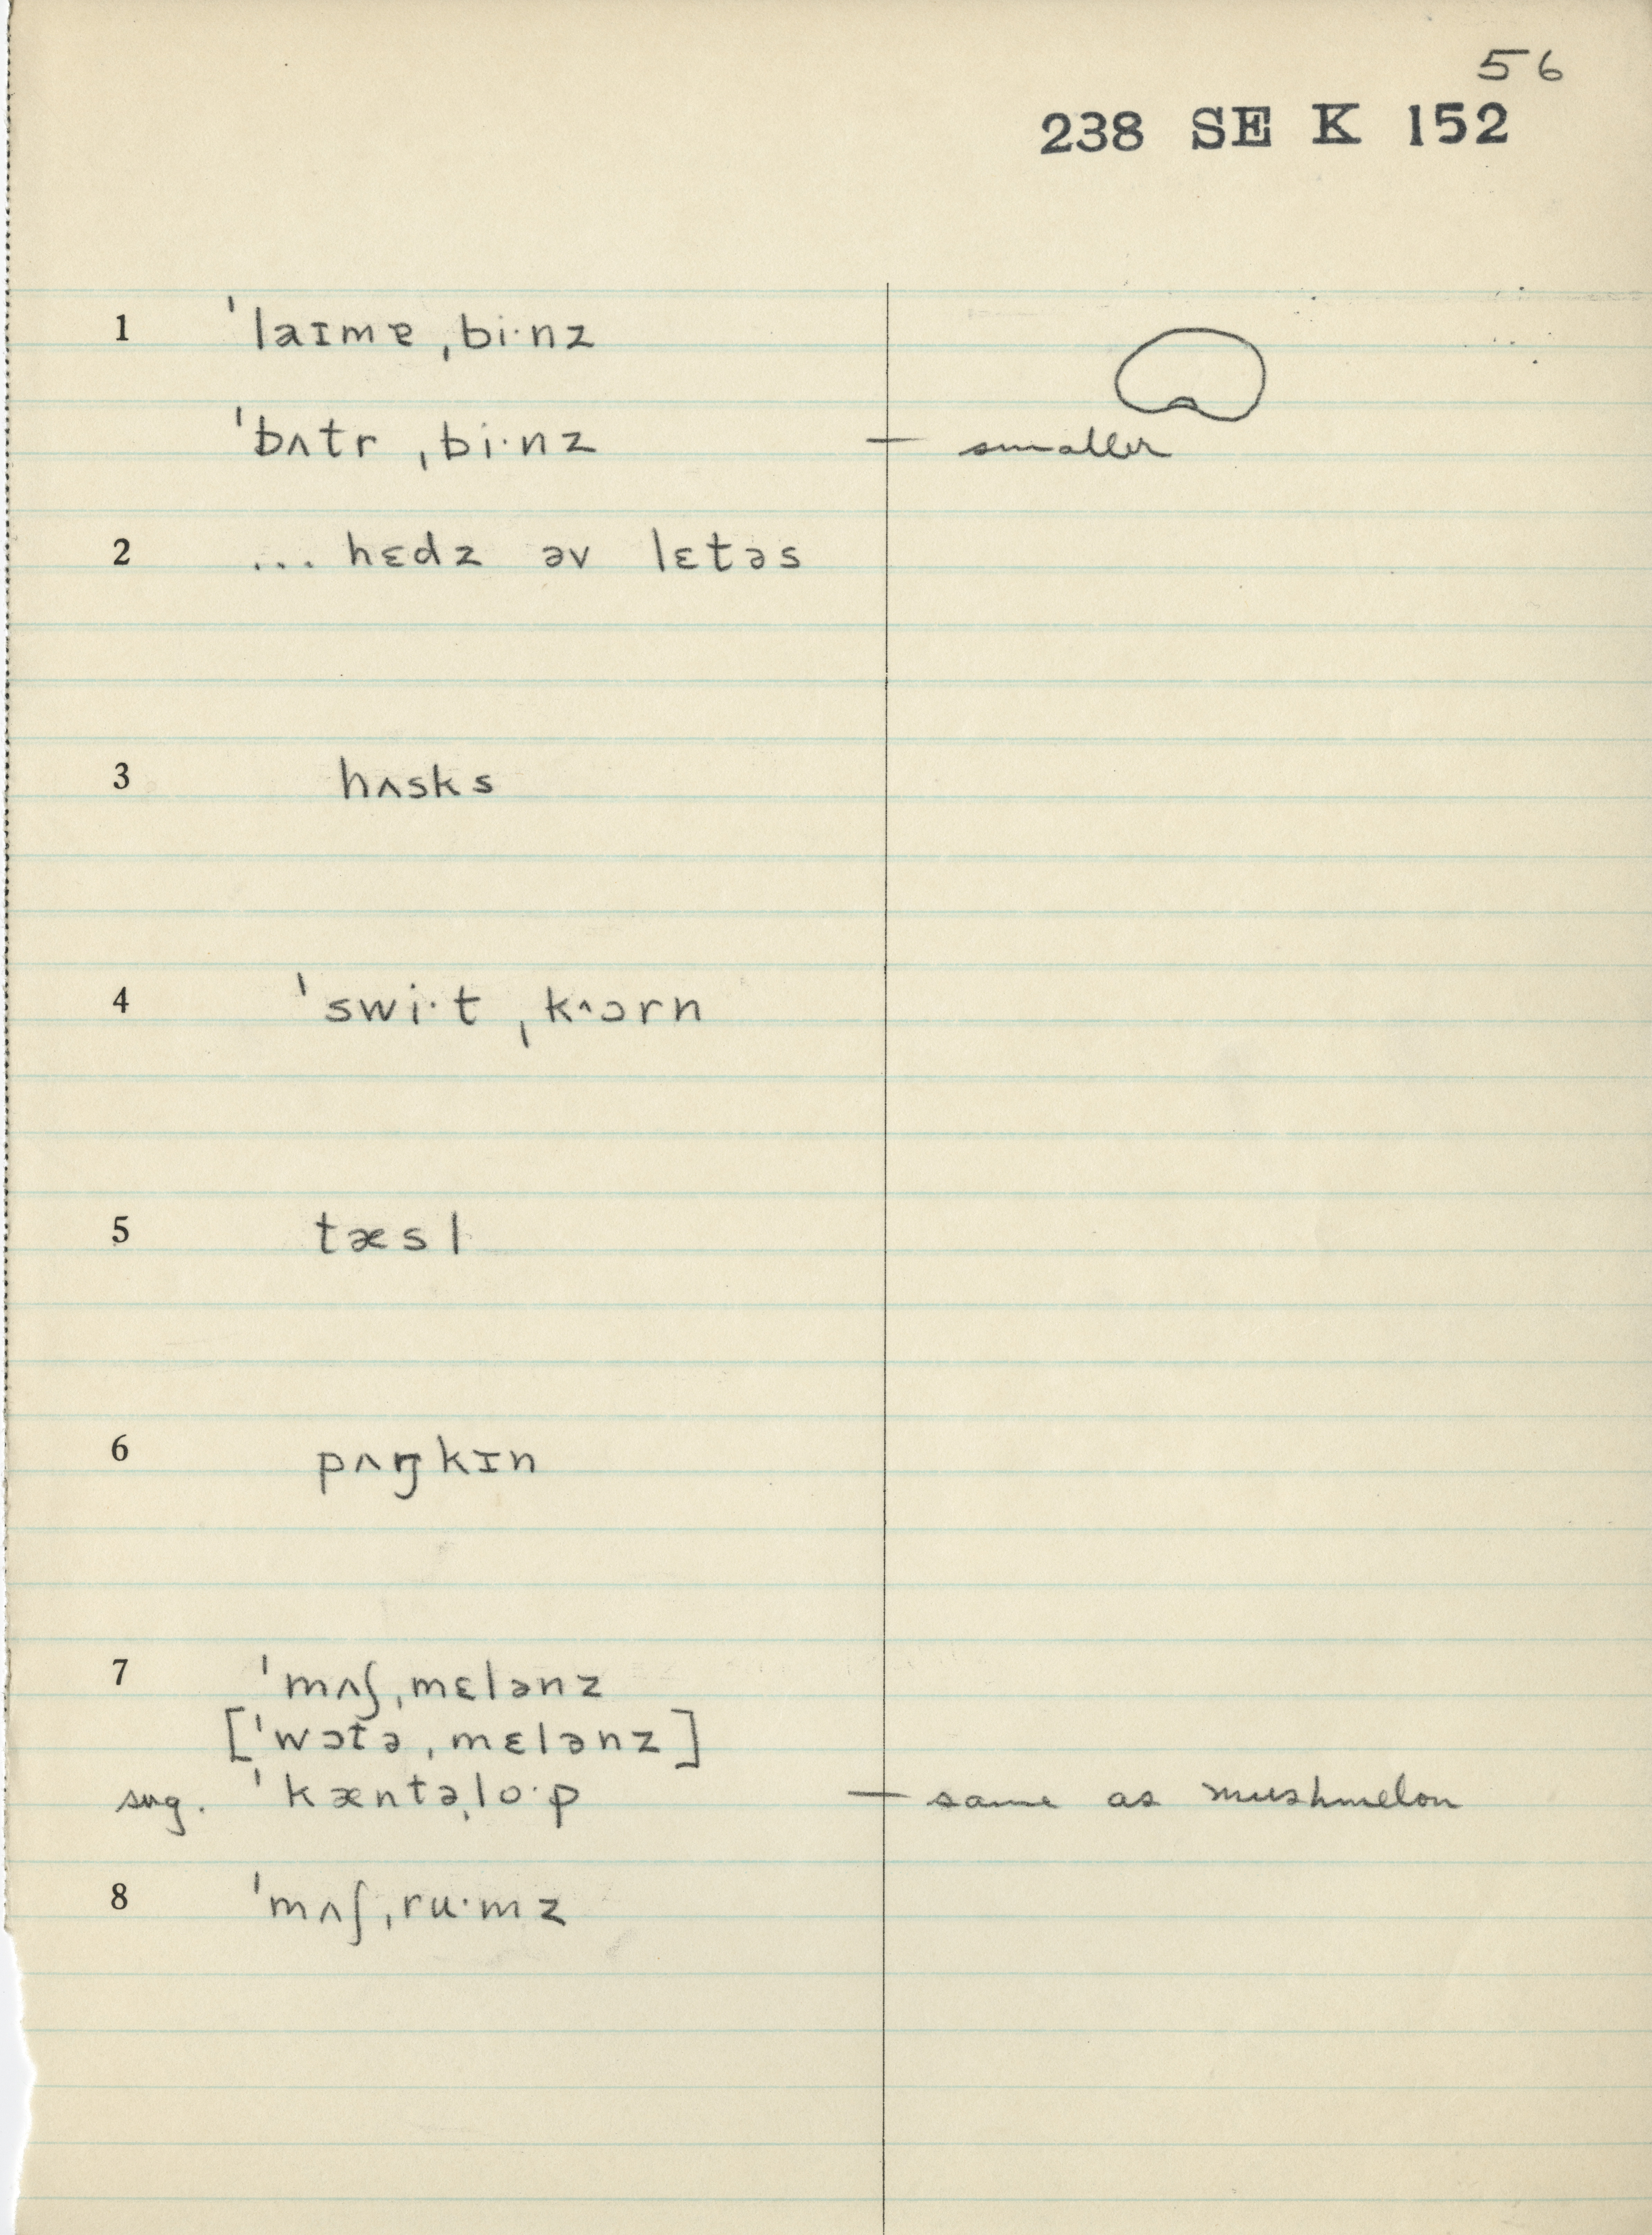 56
238 SE K 152
1 ˈlaɪmɐ ˌbi·nz
ˈbʌtr ˌbi·nz — smaller
2 ... hɛdz əv lɛtəs
3 hʌsks
4 ˈswi·t ˌk^ɔrn
5 tæsl
6 pʌŋkɪn
7 ˈmʌʃˌmɛlənz
[ˈwɔtəˌmɛlənz]
sug. ˈkæntəˌlo·p — same as mushmelon
8 ˈmʌʃˌru·mz